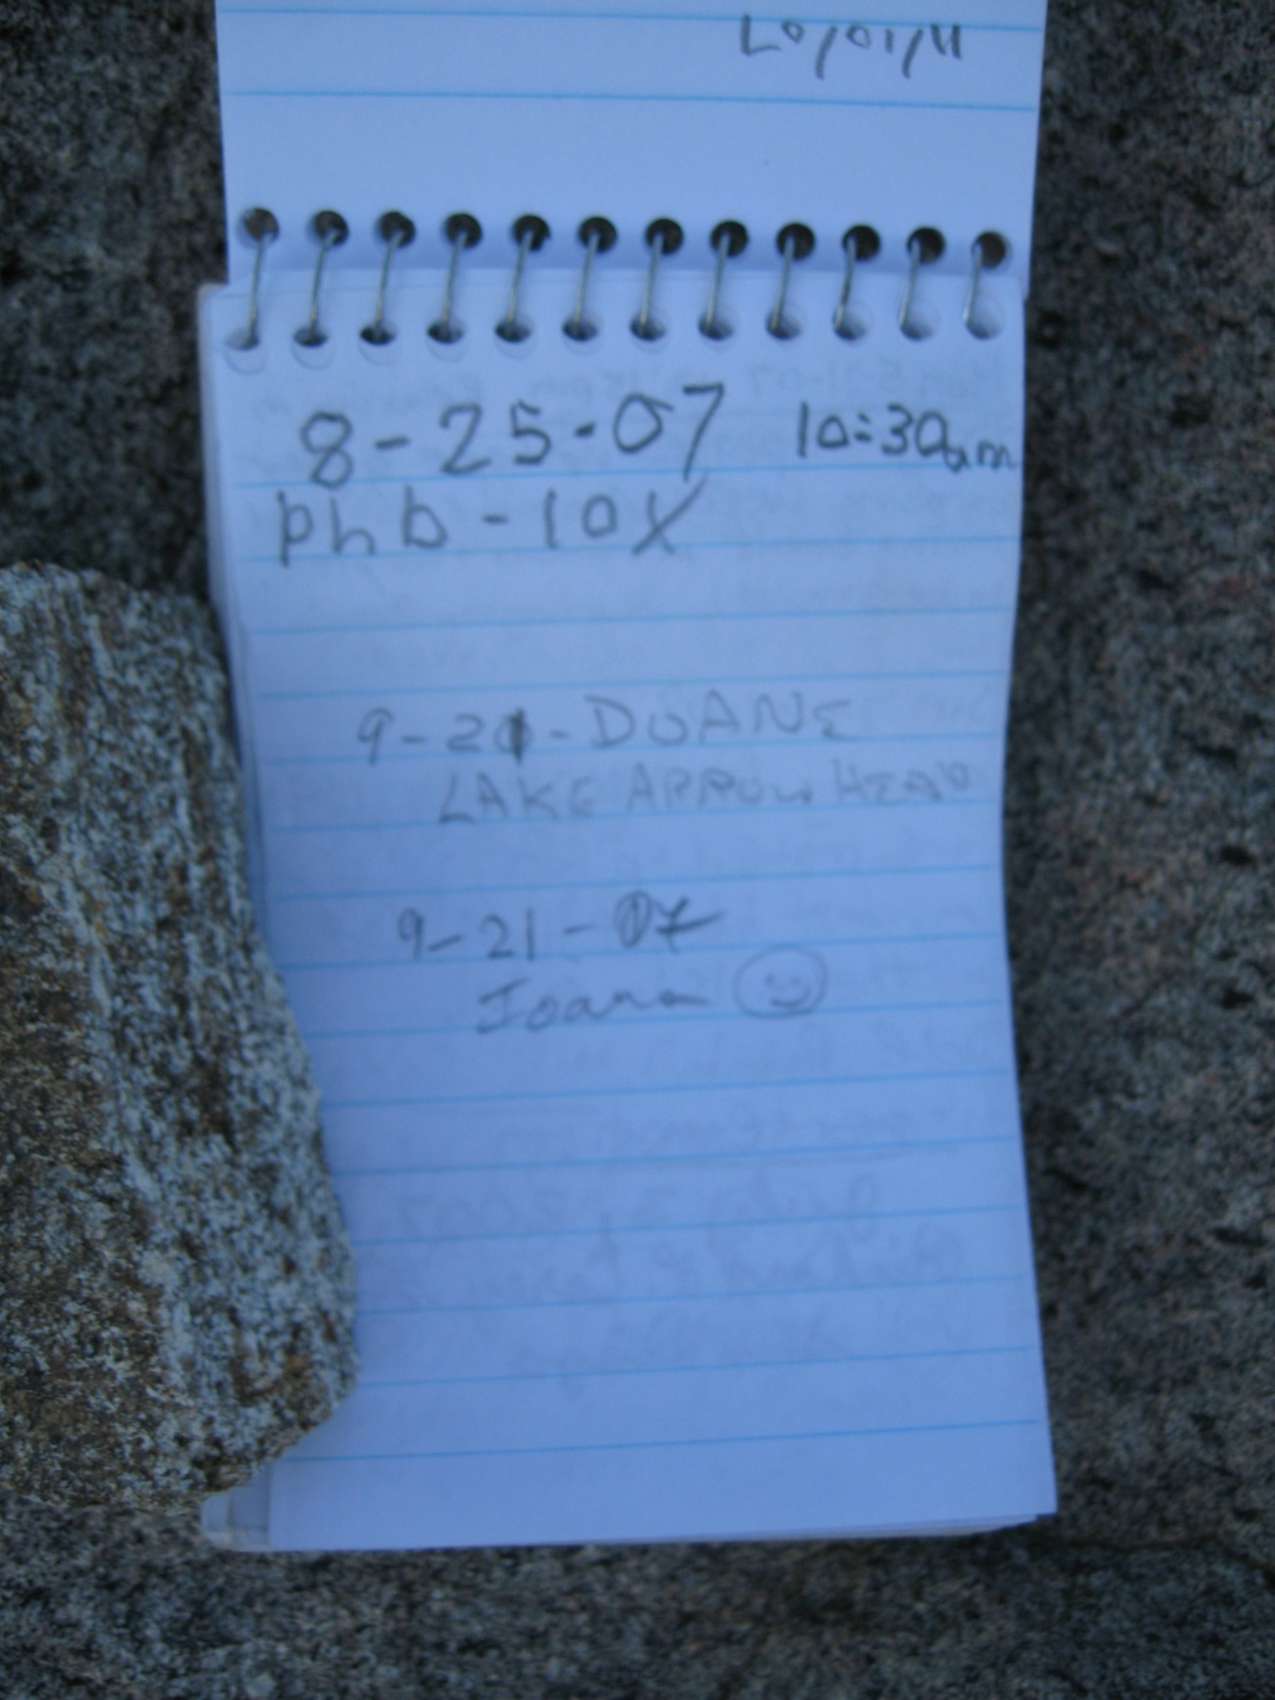 11/10/07
8-25-07 10:30am
phb-10X
9-21-DUANE
LAKE ARROWHEAD
9-21-07
Ioana